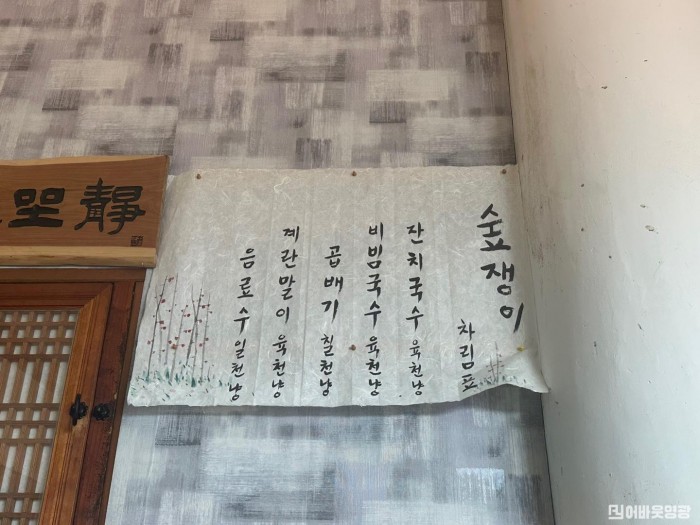 숲쟁이
차림표
잔치국수 육천냥
비빔국수 육천냥
곱배기 칠천냥
계란말이 육천냥
음료수 일천냥
靜坐
어바웃영광